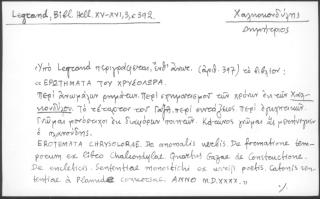 Legrand, Bibl. Hell. XV-XVI, 3, σ 392.
Χαλκονδύλης
Δημήτριος
Ὑπὸ Legrand περιγράφεται, ἔνθ' ἄνωτ. (ἀριθ. 397) τὸ βιβλίον:
« ΕΡΩΤΗΜΑΤΑ ΤΟΥ ΧΡΥΣΟΛΩΡΑ.
Περὶ ἀνωμάλων ῥημάτων. Περὶ σχηματισμοῦ τῶν χρόνων ἐκ τῶν Χαλκ-
κονδύλου. Τὸ τέταρτον τοῦ Γαζῆ, περὶ συντάξεως. Περὶ ἐγκλιτικῶν.
Γνῶμαι μονόστιχοι ἐκ διαφόρων ποιητῶν. Κάτωνος γνῶμαι ἃς
ὁ πλανούδης.
EROTEMATA CHRYSOLORAE. De anomalis verbis. De formatione tem-
porum ex libro Chalcondylae. Quartus Gazae de Constructione.
De encleticis. Sententiae monostichi ex variis poetis. Catonis sen-
tentiae à Planude conversae. ANNO M.D.XXXX. »
./.